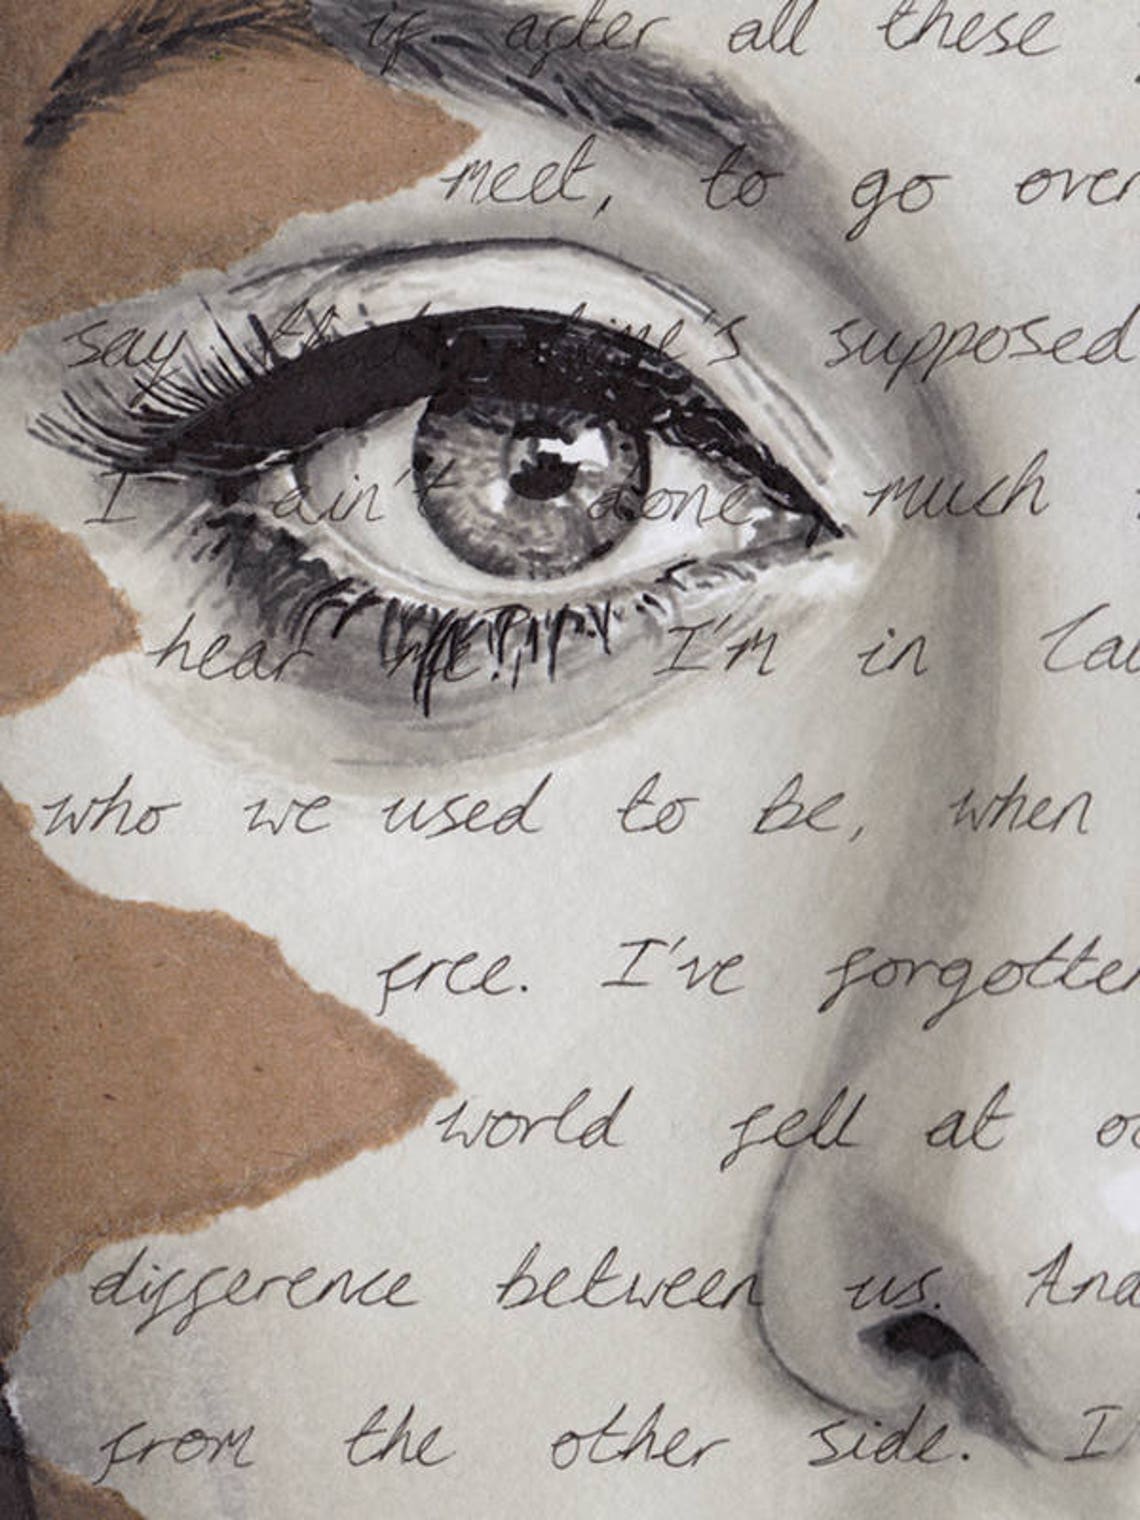 if after all these
meet, to go over
say time's supposed
I ain't done much
hear me. I'm in
who we used to be, when
free. I've forgotten
world fell at
difference between us. And
from the other side. I